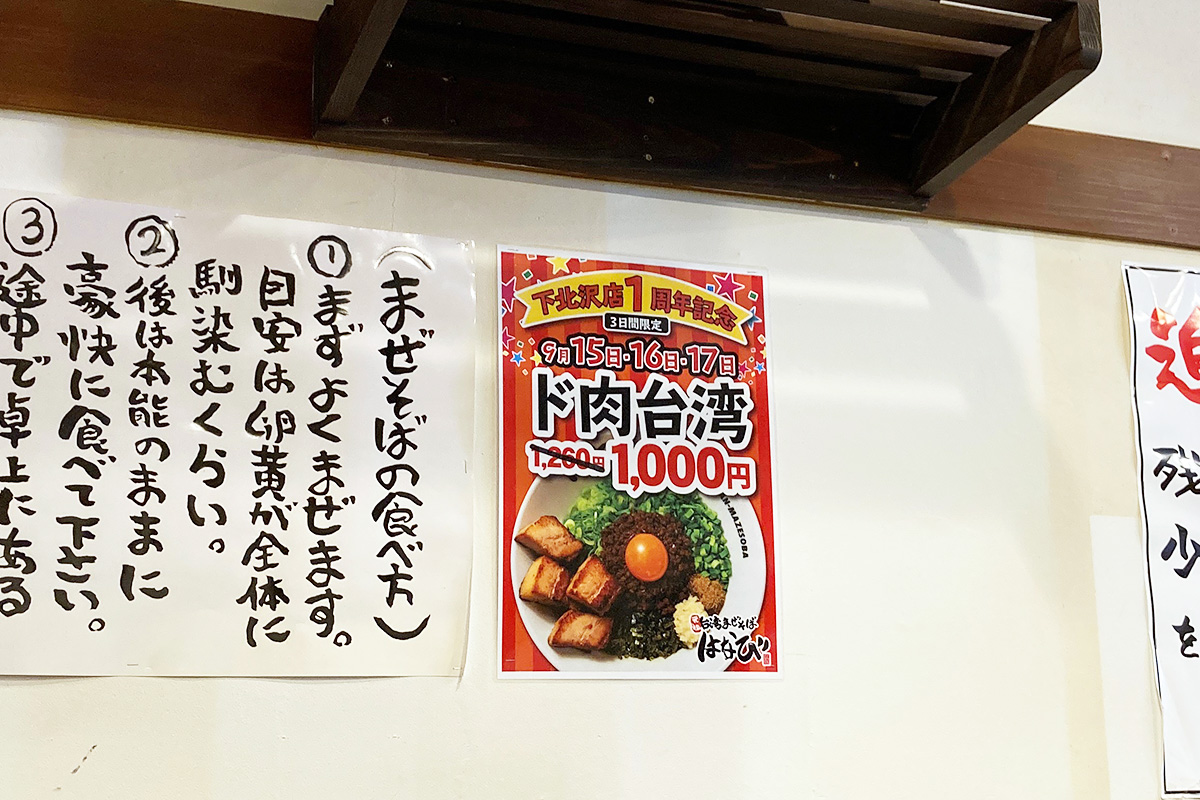 (まぜそばの食べ方)
①まずよくまぜます。
目安は卵黄が全体に
馴染むくらい。
②後は本能のままに
豪快に食べて下さい。
③途中で卓上にある
下北沢店1周年記念
3日間限定
9月15日・16日・17日
ド肉台湾
1,260円
1,000円
MAZESOBA
元祖
台湾まぜそば
はなび
追
残少を